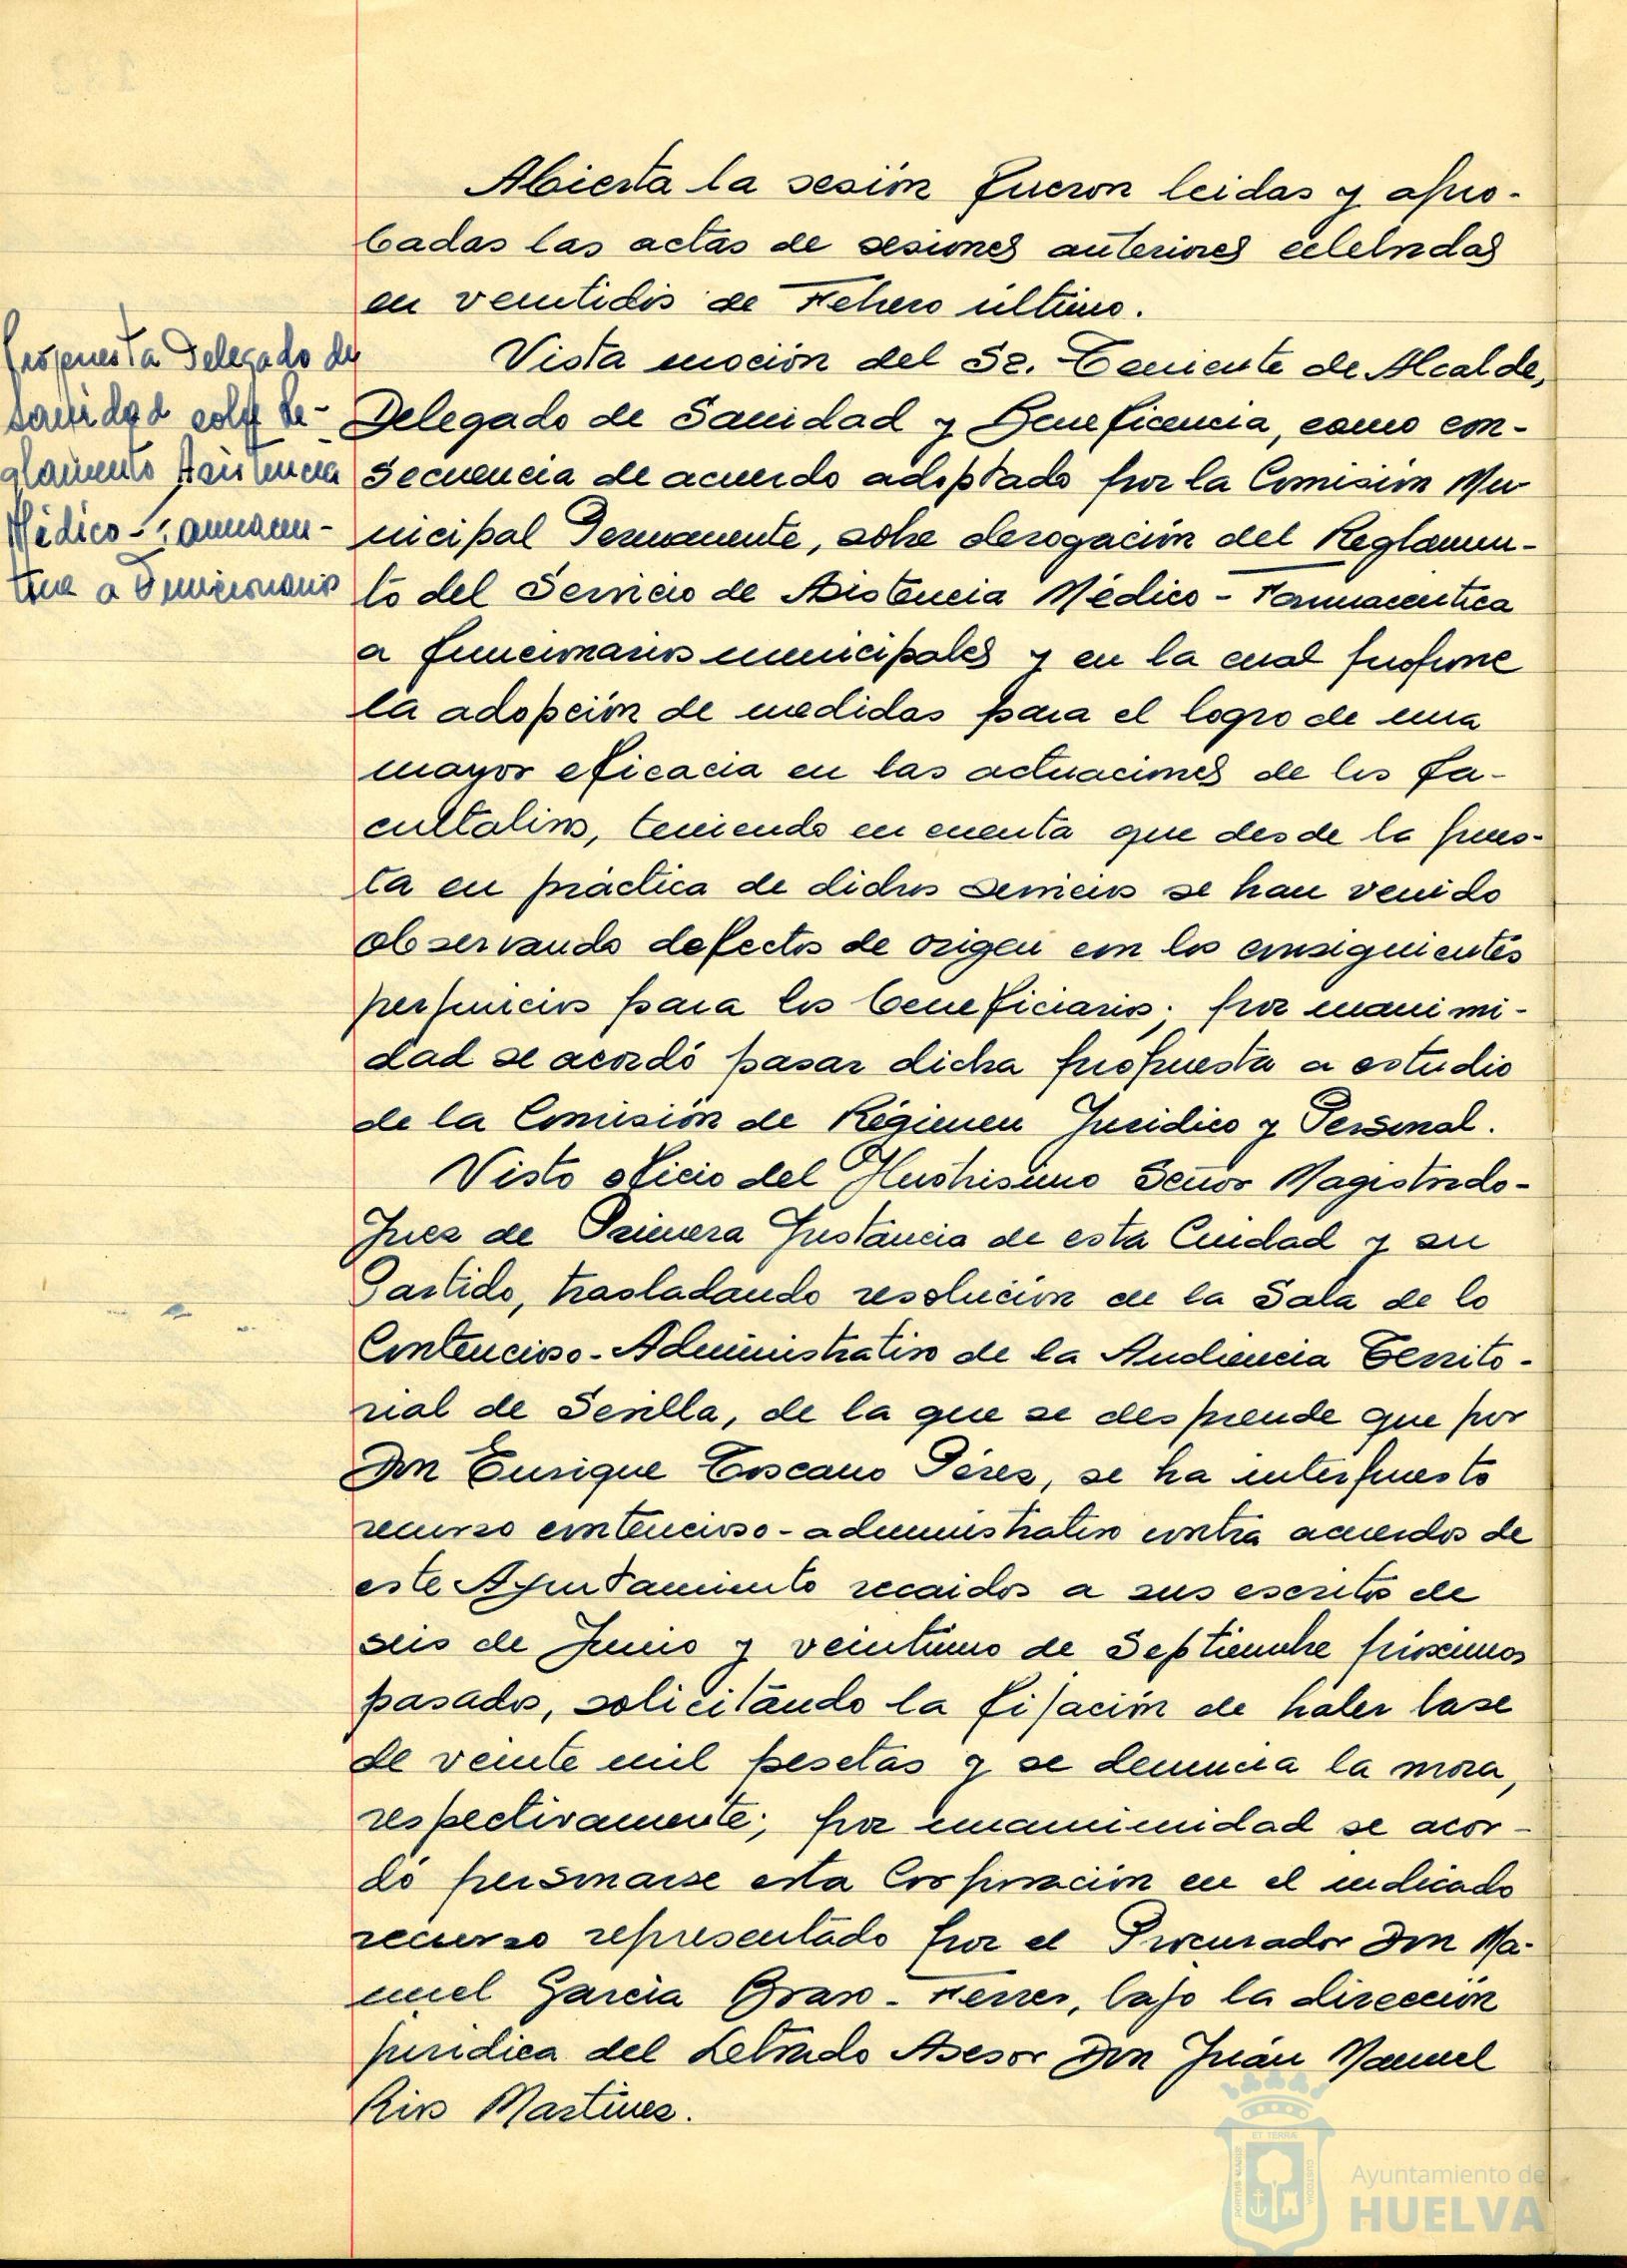 Abierta la sesión fueron leidas y apro-
badas las actas de sesiones anteriores celebradas
en veintidós de Febrero último.
Propuesta Delegado de
Sanidad sobre Re-
glamento Asistencia
Médico-Farmaceu-
tica a Funcionarios
Vista moción del Sr. Teniente de Alcalde,
Delegado de Sanidad y Beneficencia, como con-
secuencia de acuerdo adoptado por la Comisión Mu
nicipal Permanente, sobre derogación del Reglamen-
to del Servicio de Asistencia Médico-Farmaceutica
a funcionarios municipales y en la cual propone
la adopción de medidas para el logro de una
mayor eficacia en las actuaciones de los fa-
cultativos, teniendo en cuenta que desde la pues-
ta en práctica de dichos servicios se han venido
observando defectos de origen con los consiguientes
perjuicios para los beneficiarios; por unanimi-
dad se acordó pasar dicha propuesta a estudio
de la Comisión de Régimen Jurídico y Personal.
Visto oficio del Ilustrísimo Señor Magistrado-
Juez de Primera Instancia de esta Ciudad y su
Partido, trasladando resolución de la Sala de lo
Contencioso-Administrativo de la Audiencia Territo-
rial de Sevilla, de la que se desprende que por
Don Enrique Toscano Pérez, se ha interpuesto
recurso contencioso-administrativo contra acuerdos de
este Ayuntamiento recaidos a sus escritos de
seis de Junio y veintiuno de Septiembre próximos
pasados, solicitando la fijación de haber base
de veinte mil pesetas y se denuncia la mora,
respectivamente; por unanimidad se acor-
dó personarse esta Corporación en el indicado
recurso representado por el Procurador Don Ma-
nuel García Bravo-Ferrer, bajo la dirección
jurídica del Letrado Asesor Don Juan Manuel
Rios Martinez.
PORTUS MARIS
ET TERRA
CUSTODIA
Ayuntamiento de
HUELVA